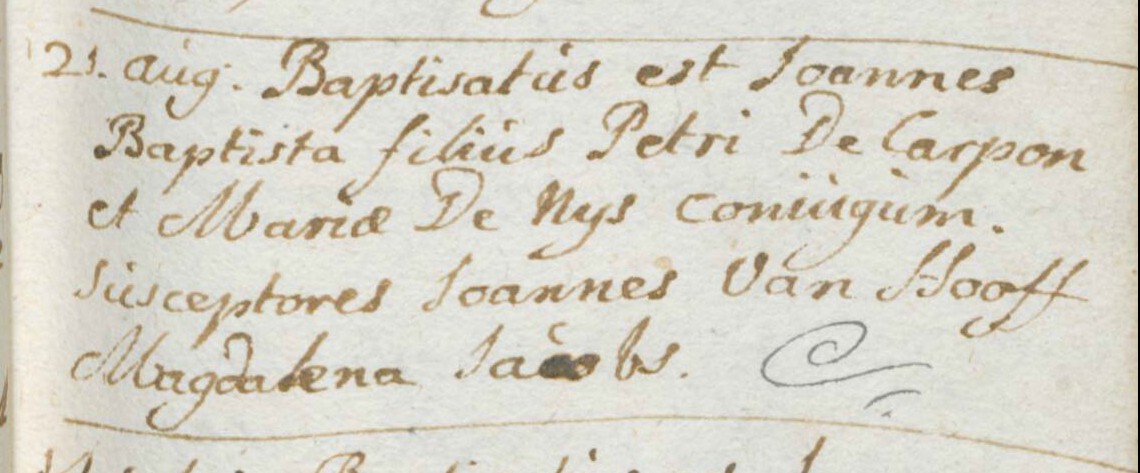 21. aug. Baptisatus est Joannes
Baptista filius Petri De Carpon
et Mariæ De Nys coniugum.
Susceptores Joannes Van Hooff
Magdalena Jacobs.